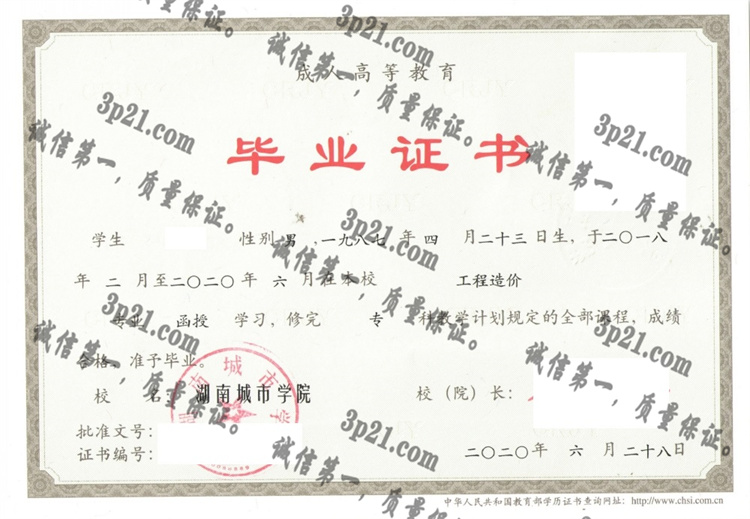 成人高等教育
毕业证书
学生 性别 男 ,一九八七 年 四 月二十三日生,于二〇一八
年 二 月至二〇二〇年 六 月在本校 工程造价
专业 函授 学习,修完 专 科教学计划规定的全部课程,成绩
合格,准予毕业。
校 名: 湖南城市学院 校(院)长:
批准文号:
证书编号: 二〇二〇年 六 月 二十八日
中华人民共和国教育部学历证书查询网址: http://www.chsi.com.cn
湖南城市学
3p21.com
诚信第一,质量保证。
3p21.com
诚信第一,质量保证。
3p21.com
诚信第一,质量保证。
3p21.com
诚信第一,质量保证。
3p21.com
诚信第一,质量保证。
3p21.com
诚信第一,质量保证。
3p21.com
诚信第一,质量保证。
3p21.com
诚信第一,质量保证。